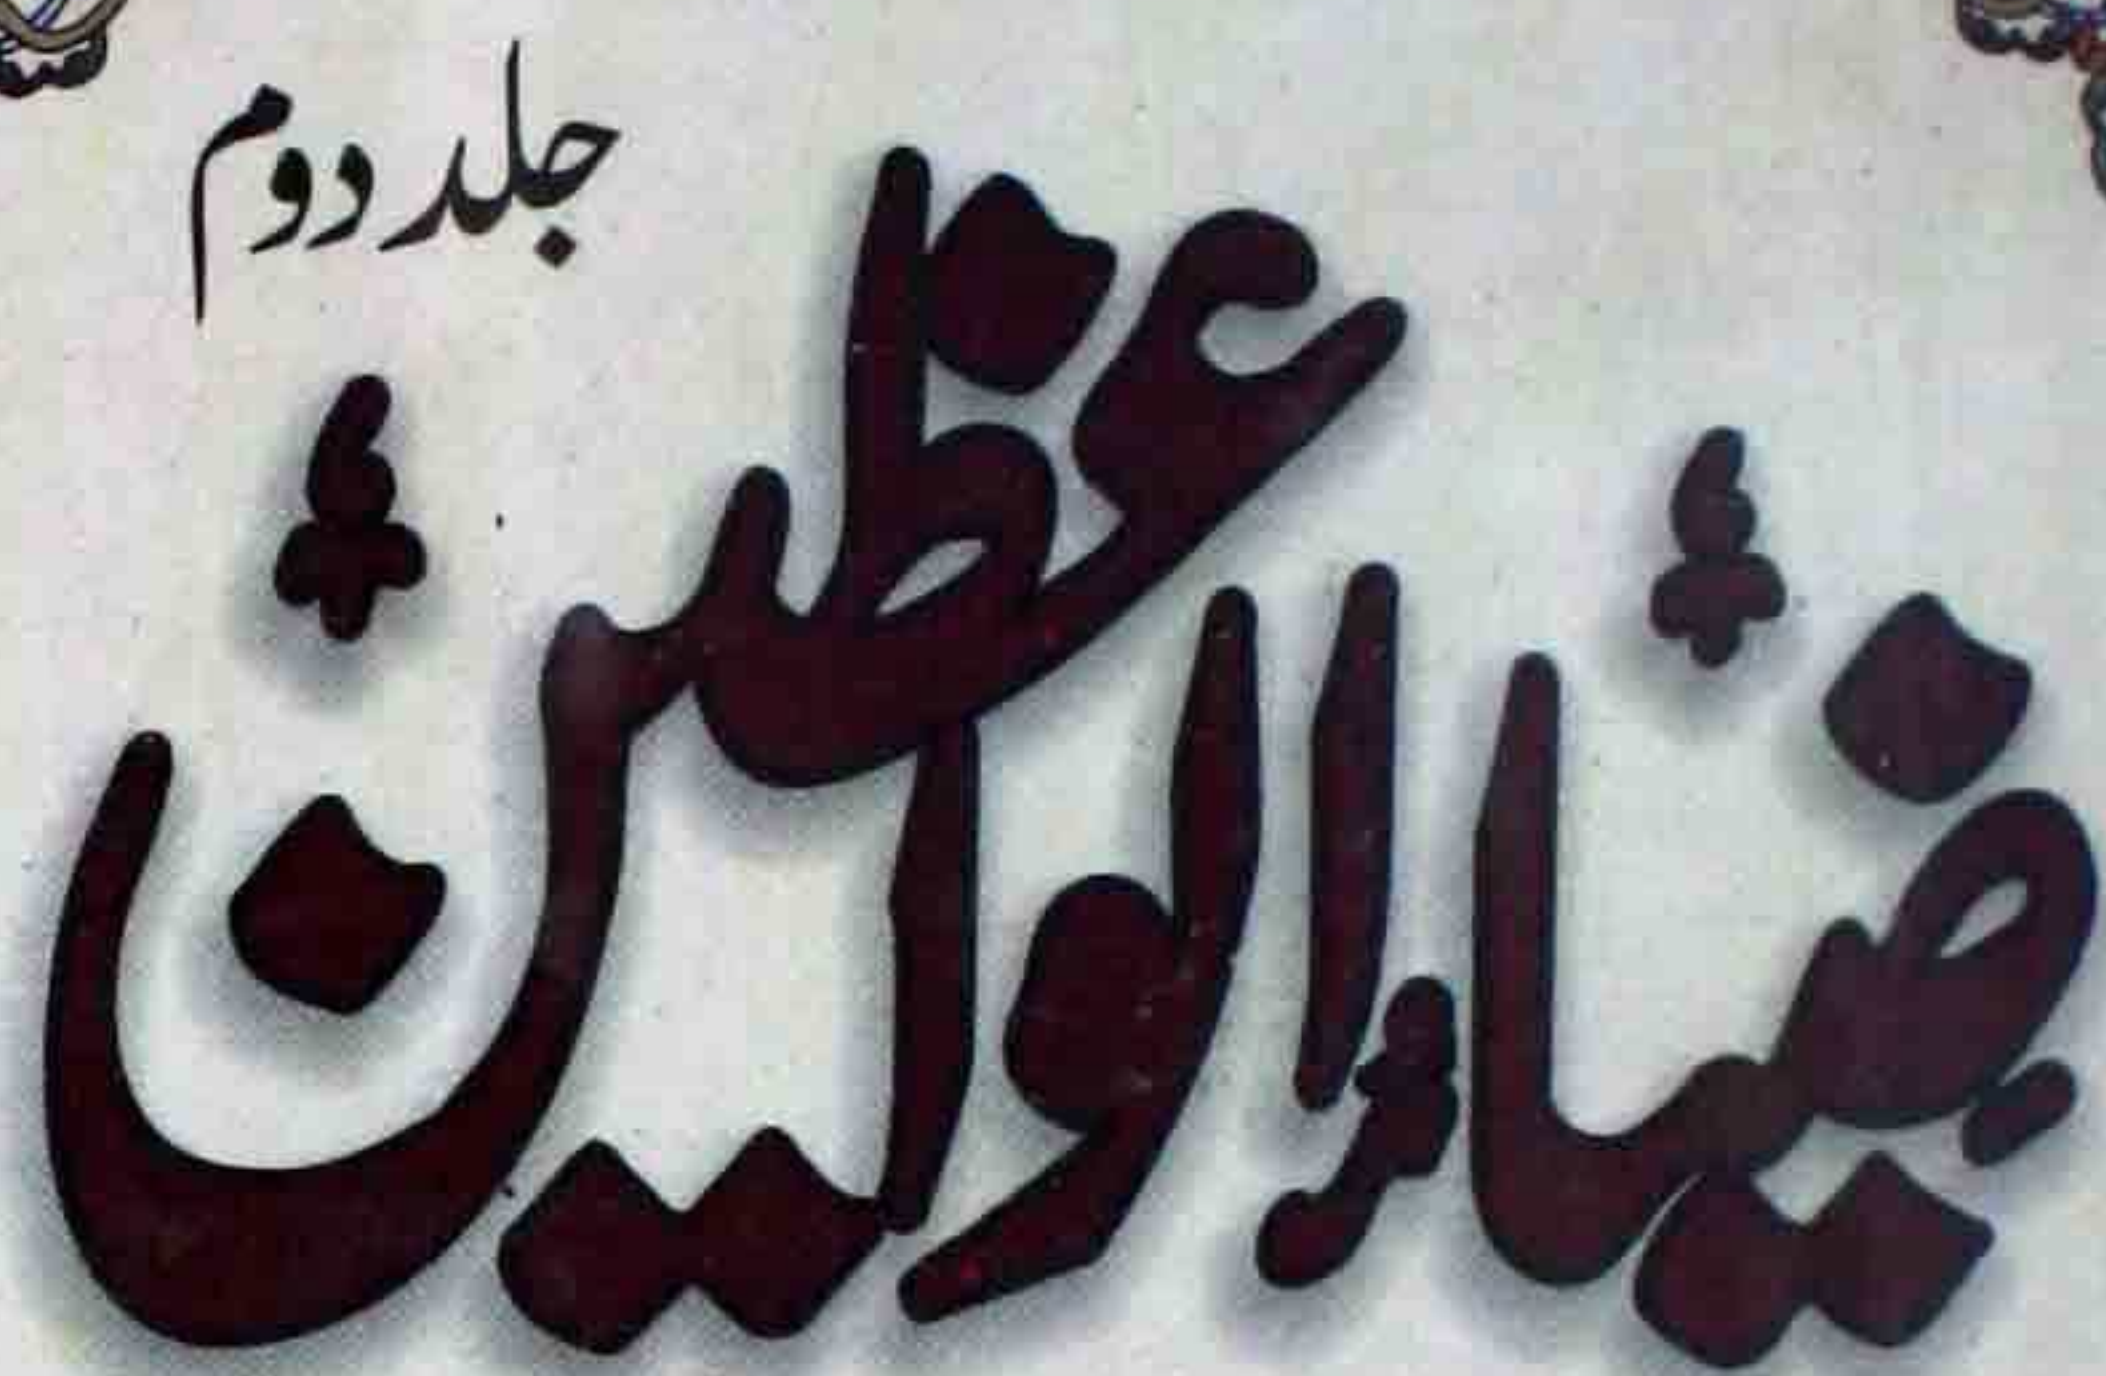 جلد دوم
ضیاء الواعظین